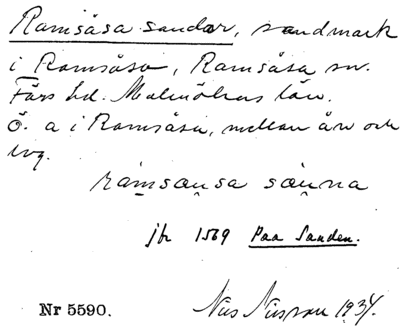 Ramsåsa sandar, sandmark
i Ramsåsa, Ramsåsa sn.
Färs hd. Malmöhus län.
Ö. a i Ramsåsa, mellan ån och
lvg.
ràmsau̯sa sànna
jfr 1569 Paa Sanden.
Nr 5590. Nils Nilsson 1934.